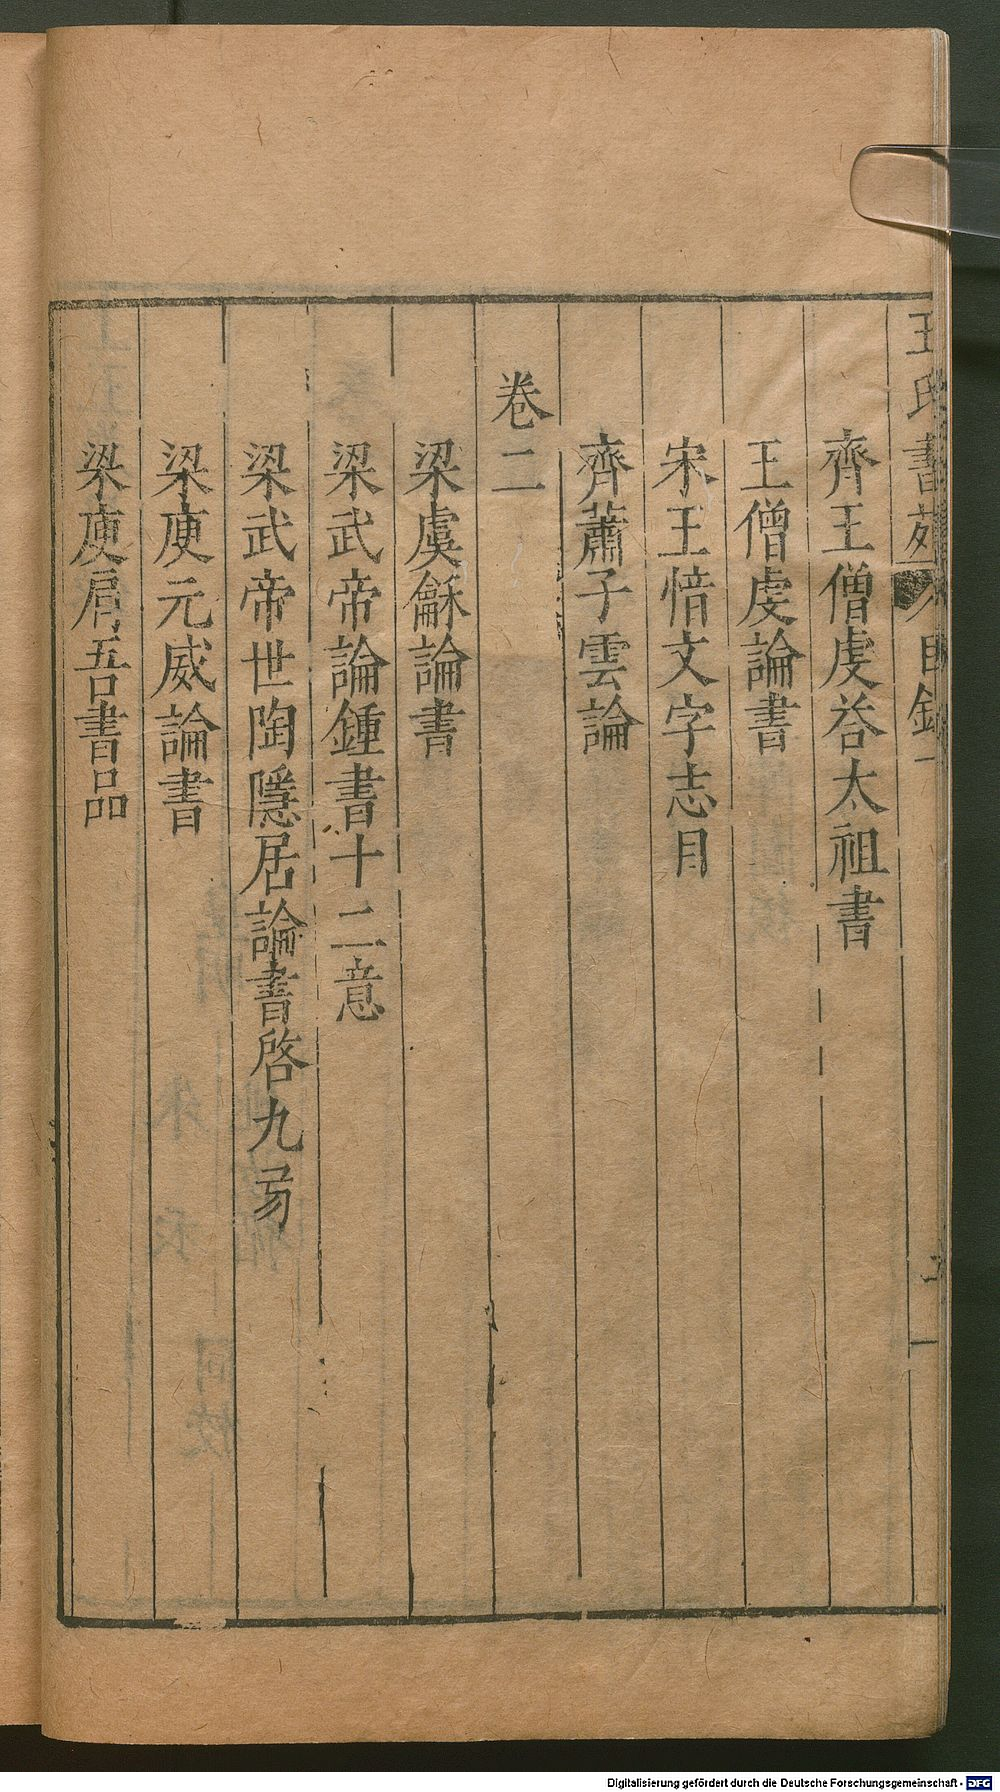 王氏書苑 目錄
齊王僧虔荅太祖書
王僧虔論書
宋王愔文字志目
齊蕭子雲論
卷二
梁虞龢論書
梁武帝論鍾書十二意
梁武帝世陶隱居論書啓九首
梁庾元威論書
梁庾肩吾書品
Digitalisierung gefördert durch die Deutsche Forschungsgemeinschaft - DFG